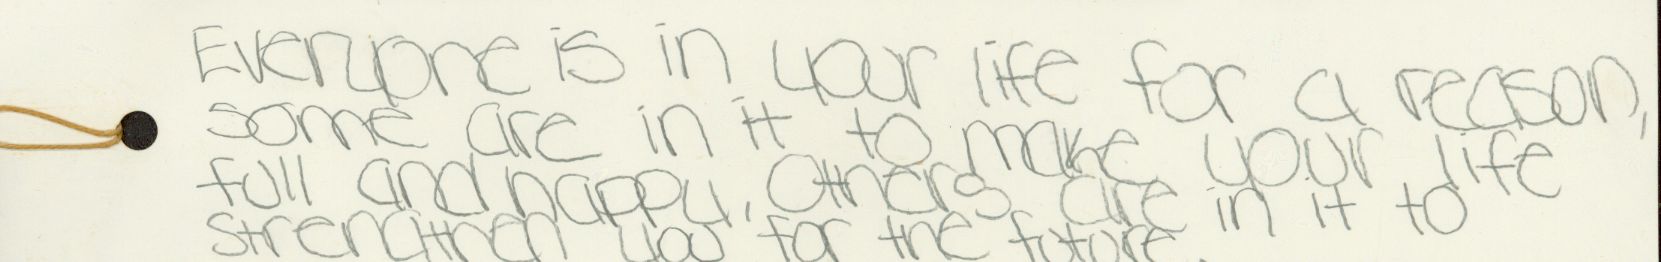 Everyone is in your life for a reason,
some are in it to make your life
full and happy, Others are in it to
strengthen you for the future.